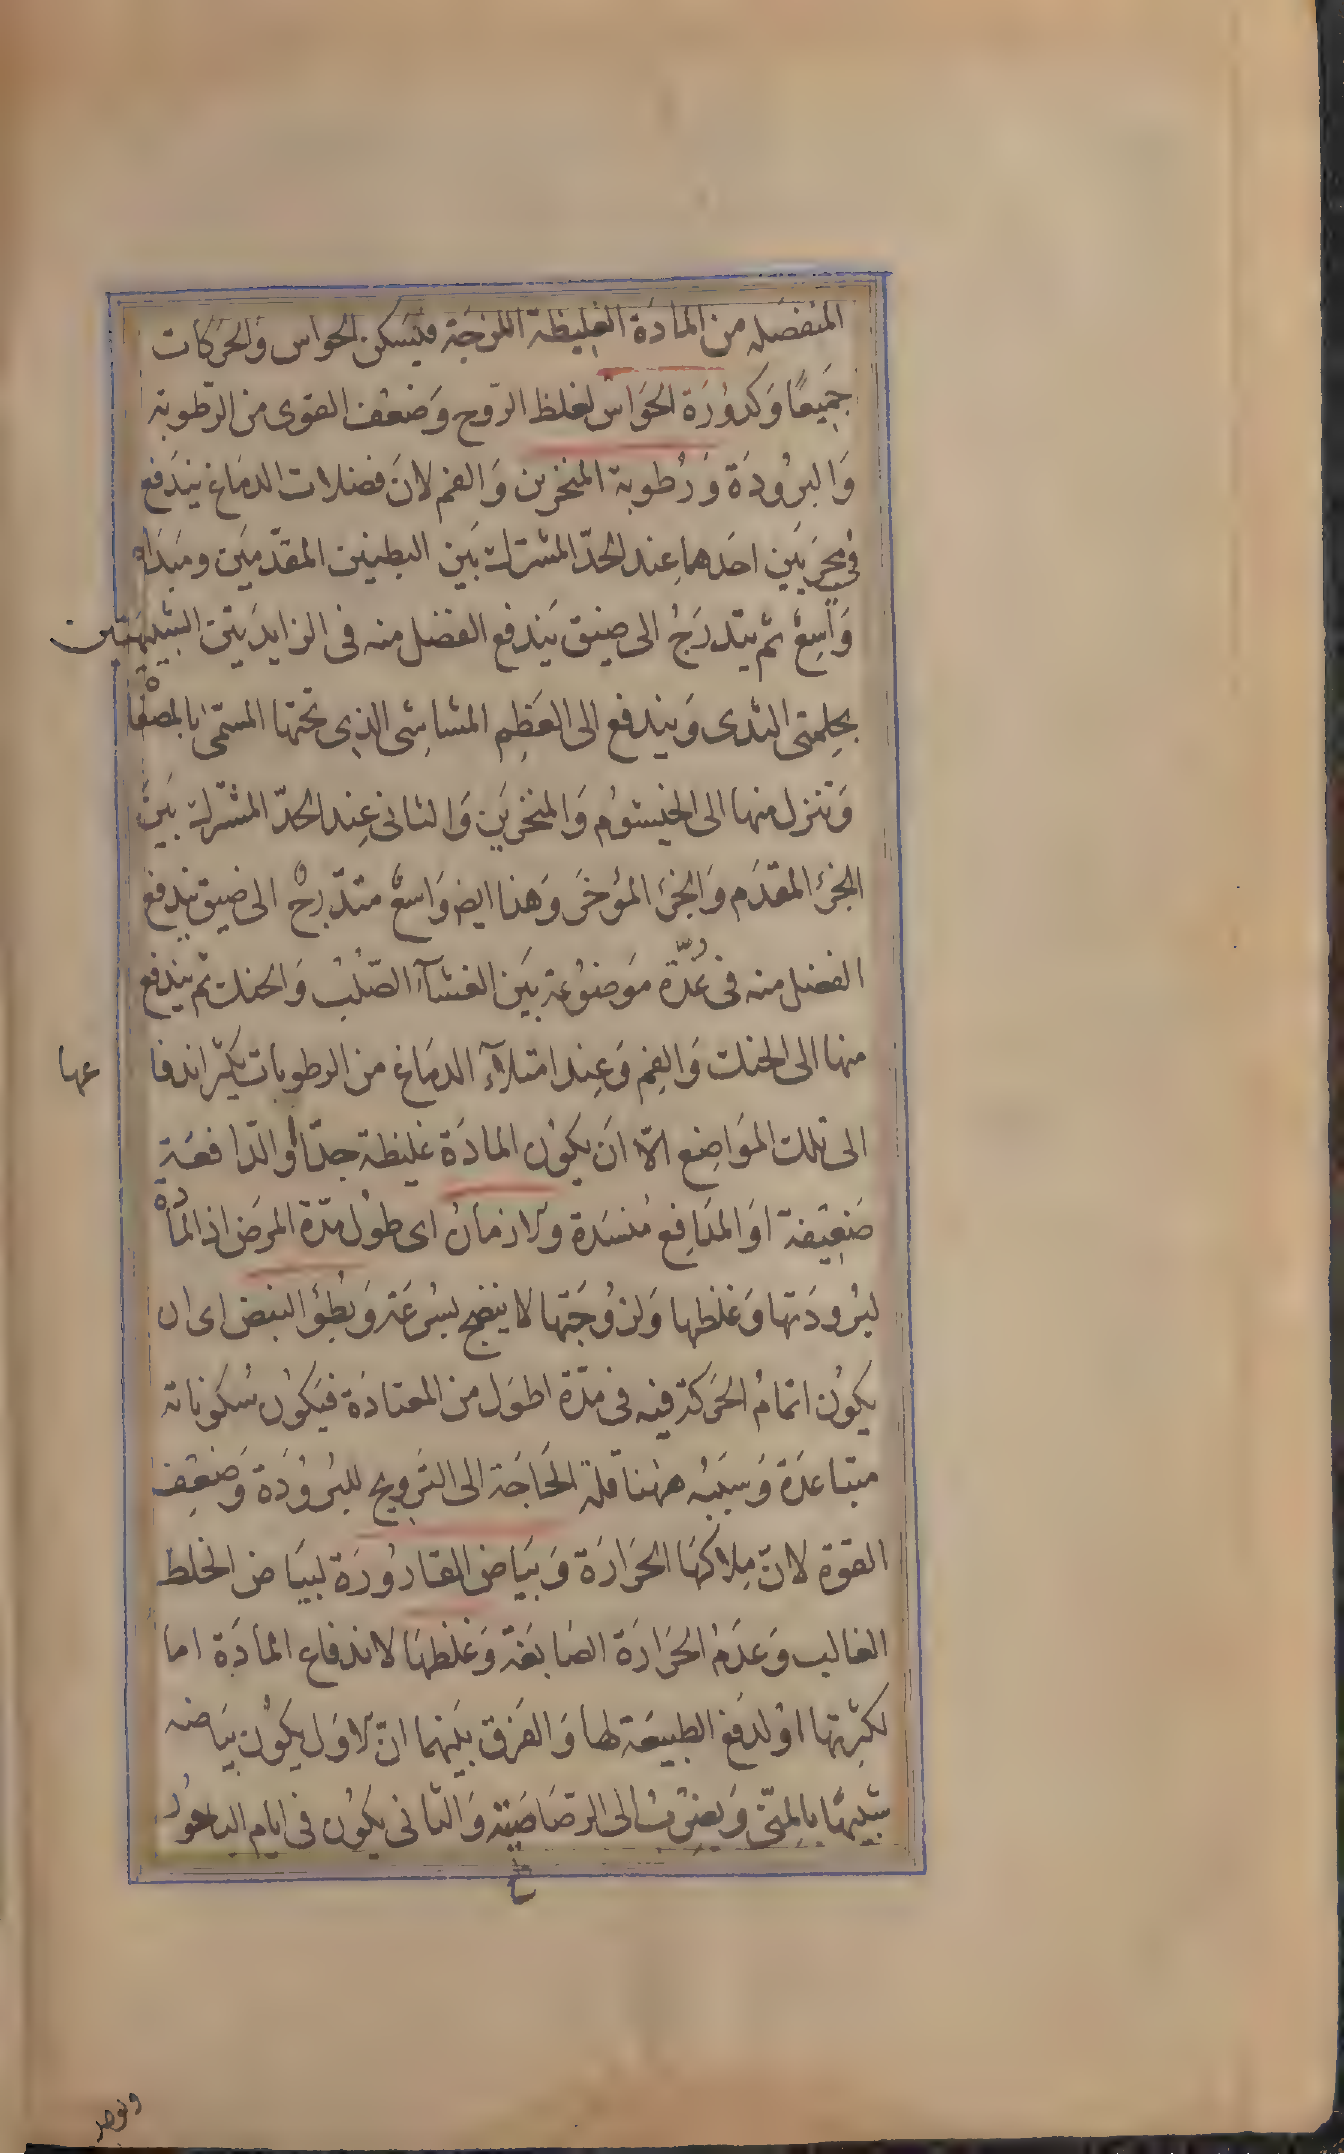 المنفصله من المادَة الغليظة اللزجَة فيَسكن الحواس وَالحرَكات
جَميعًا وَكدورَة الحَوَاس لغلظ الرّوح وَضعف القوى من الرّطوبة
وَالبرُودَة وَرُطوبة المنخرين وَالفم لانَ فضلات الدمَاغ يندَفع
في مجرَيَين احَدهما عِند الحدّ المشترك بَين البطينين المقدّميَن ومَبدَاه
وَاسِعٌ ثم يتدرَجُ الى ضيق يَندفع الفضل منه فى الزايدَيتين الشبيهَتين
بحلمتى الثدى وَيندفع الى العَظِم المشاشِى الذِى تحتها المسمّى بالمصفاة
وَتنزل منها الى الخيشوُم وَالمنخرَين وَالثانى عِند الحَدّ المشترك بَينَ
الجزءَ المقدَم وَالجزءَ المؤخرَ وَهذا ايضا وَاسعٌ متدّرجٌ الى ضيق يندفع
الفضل منه فى غُدّة مَوضوُعة بَين الغشآء الصّلبُ وَالحنك ثم يندفع
منها الى الحنك وَالفِم وَعِند امتلآءِ الدمَاغ من الرطوبات يكثر اندفاعها
الى تلك الموَاضِع الّا انَ يكوُن المادَة غليظة جدّا اوَ الدّافعَة
ضَعِيفة اوَ المدَافِع مُنسَدة وَالازمانُ اى طوُل مدّة المرَض اذ المادة
لبرُودَتها وَغلظها وَلزُوجَتها لا ينضج بسُرعَة وَبُطؤ النبض اى ان
يكوُن اتمامُ الحَرَكة فيه فى مدّة اطوَل من المعتادَة فيَكوُن سُكوناته
متباعدَة وَسبَبُه ههُنا قلة الحَاجَة الى التَرويح للبرُوُدَة وَضعِف
القوة لانّ مِلاكهَا الحَرَارَة وَبيَاض القارُورَة لبيَاض الخلط
الغالب وَعدَم الحَرَارَة الصَابغَة وَغلظهَا لاندفاع المادَة اما
لكثرتها اوْ لدفَع الطبيعَة لها وَالفرَق بَينهما انّ الاوَل يكوُن بيَاضه
شبيهًا بالمِنّى وَيضرُب الى الرّصَاصَية وَالثانى يكوُن فى ايام الباحوُر